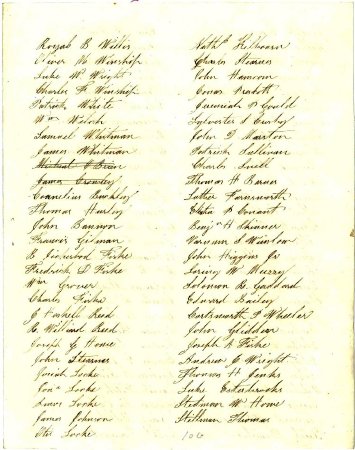 Royal B Willis
Oliver W Winship
Luke Wright
Charles F Winship
Patrick White
Wm Welch
Samuel Whitman
James Whitman
Michael O Brien
James Crowley
Cornelius Buckley
Thomas Hurley
John Bannon
Francis Gilman
Fiske
Frederick D Fiske
Wm Grover
Charles Fiske
J Haskell Reed
H. Willard Reed
Joseph G Howe
John Stearns
Josiah Locke
Jona Locke
Locke
James Johnson
Otis Locke
Nathl Kilbourn
Charles Stearns
John Hancom
Jeremiah P Gould
Sylvester S Crosby
John D Marston
Patrick Sullivan
Charles Snell
Thomas H
Luther Farnsworth
P Conant
Benjn H Skinner
S Winslow
John Higgins Jr
Loring W Muzzy
Solomon R Goddard
Edward Bailey
P Wheeler
John Gliddon
Joseph A Fiske
Andrew C Wright
Thomas H Jenks
Luke Estabrooks
Stedman W Howe
Stillman Thomas
106